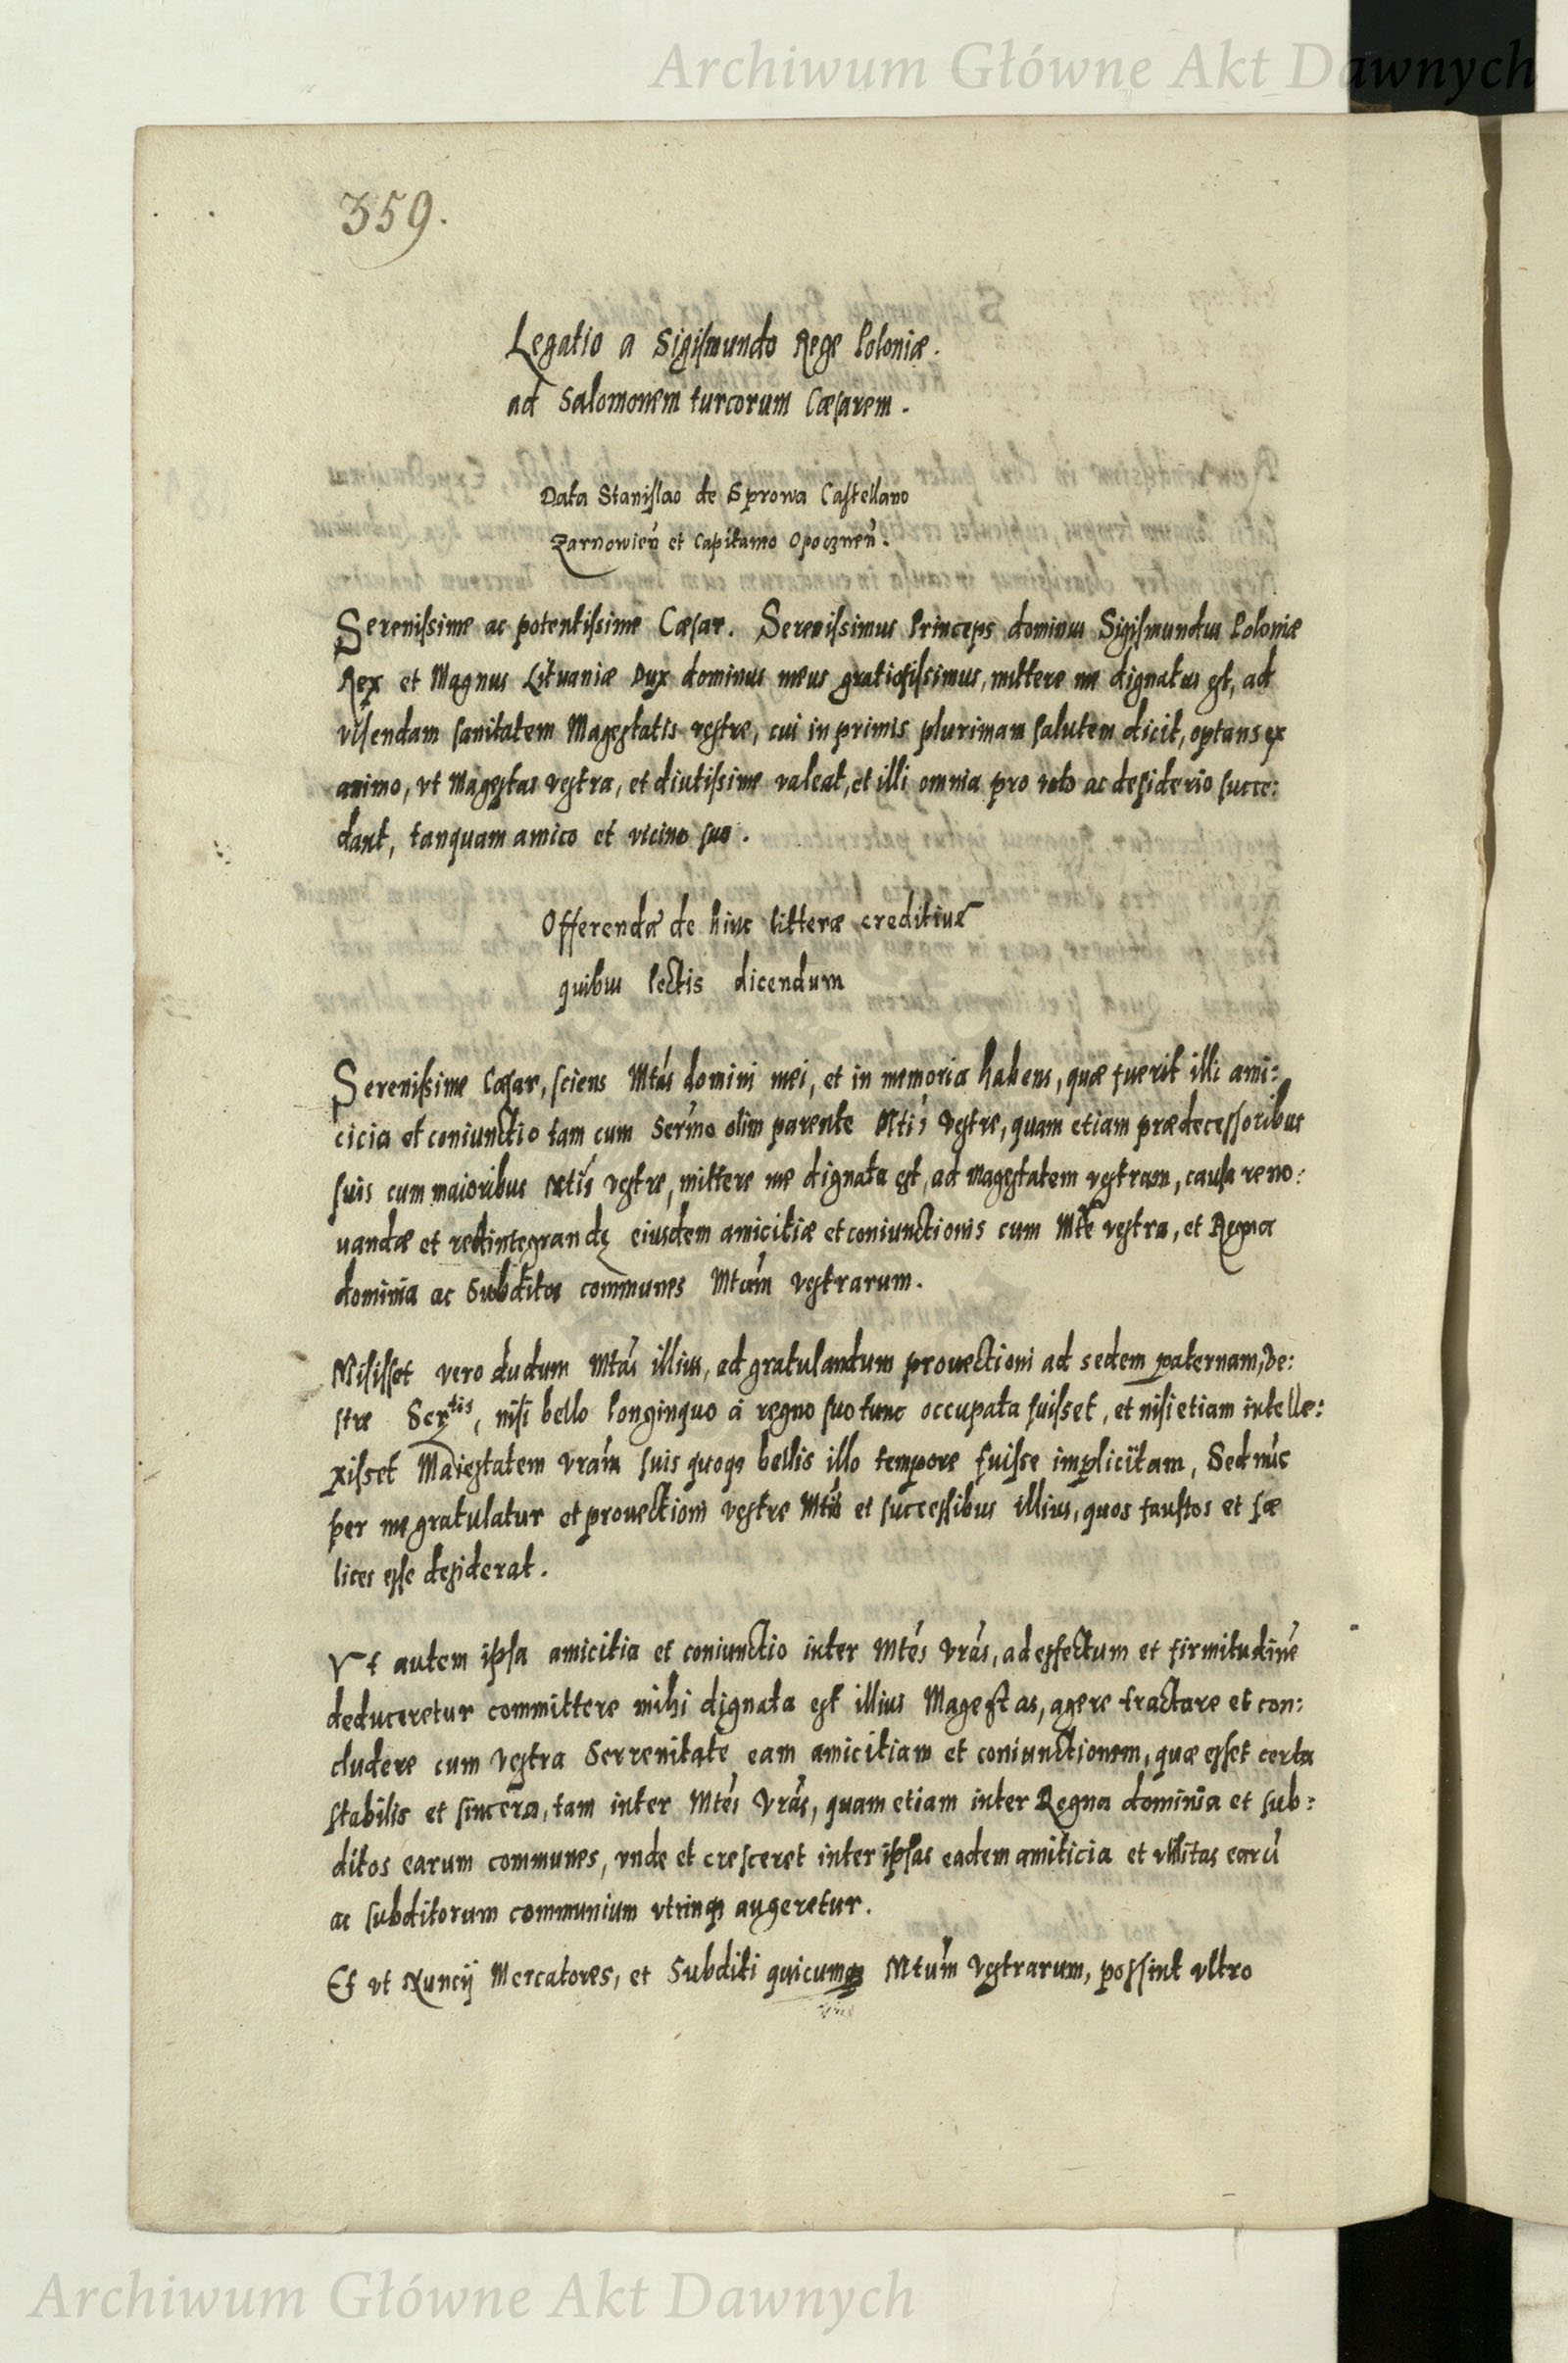 Archiwum Główne Akt Dawnych
359.
Legatio a Sigismundo Rege Poloniæ.
ad Salomonem turcorum Cæsarem.
Data Stanislao de Sprowa Castellano
Zarnowień et Capitaneo Opoczneń.
Serenissime ac potentissime Cæsar. Serenissimus Princeps dominus Sigismundus Poloniæ
Rex et Magnus Lituaniæ Dux dominus meus gratiosissimus, mittere me dignatus est, ad
visendam sanitatem Magestatis vestre, cui in primis plurimam salutem dicit, optans ex
animo, vt Magestas vestra, et diutissime valeat, et illi omnia pro voto ac desiderio succe:
dant, tanquam amico et vicino suo.
Offerendæ de hinc litteræ creditivæ
quibus lectis dicendum
Serenissime Cæsar, sciens Mtás domini mei, et in memoria habens, quæ fuerit illi ami:
cicia et coniunctio tam cum Sermo olim parente Mtis vestre, quam etiam prædecessoribus
suis cum maioribus Mtis vestre, mittere me dignata est, ad Magestatem vestram, causa reno:
uandæ et redintegrandę eiusdem amicitiæ et coniunctionis cum Mte vestra, et Regna
dominia ac Subditos communes Mtum vestrarum.
Misisset vero dudum Mtás illius, ad gratulandum prouectioni ad sedem paternam, ve:
stre Sertis, nisi bello longinquo a regno suo tunc occupata fuisset, et nisi etiam intelle:
xisset Maiestatem vram suis quoqe bellis illo tempore fuisse implicitam, Sed núc
per me gratulatur et prouectioni vestre Mtis et successibus illius, quos faustos et fæ
lices esse desiderat.
Vt autem ipsa amicitia et coniunctio inter Mtes vras, ad effectum et firmitudinē
deduceretur committere mihi dignata est illius Magestas, agere tractare et con:
cludere cum vestra Serrenitate eam amicitiam et coniunctionem, quæ esset certa
stabilis et sincera, tam inter Mtes Vras, quam etiam inter Regna dominia et sub:
ditos earum communes, vnde et cresceret inter ipsas eadem amiticia et vtilitas earū
ac subditorum communium vtrinqȝ augeretur.
Et vt Nuncij Mercatores, et Subditi quicumqȝ Mtum Vestrarum, possint vltro
Archiwum Główne Akt Dawnych